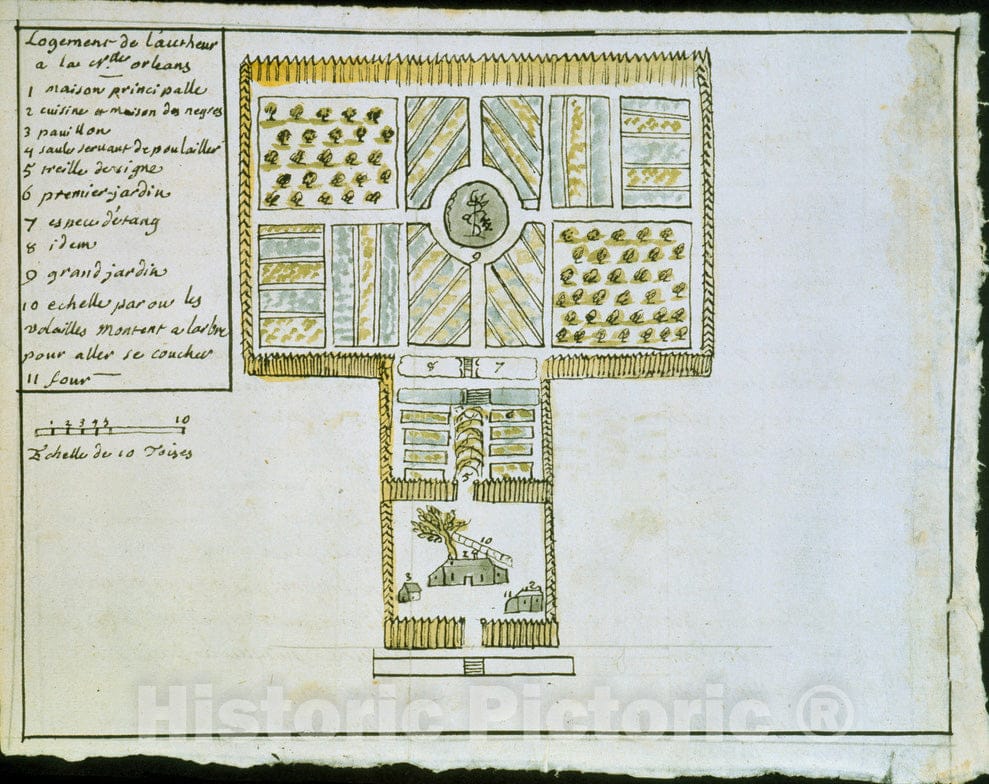 Logement de l'autheur
a la Nlle orleans
1 maison principalle
2 cuisine et maison des negres
3 pavillon
4 saule servant de poulailler
5 treille de vigne
6 premier jardin
7 espece d'étang
8 idem
9 grand jardin
10 echelle par ou les
volailles montent a larbre
pour aller se coucher
11 four
1 2 3 4 5 10
Echelle de 10 Toises
8 7
9
6
5
10
4
3
2
11
Historic Pictoric ®